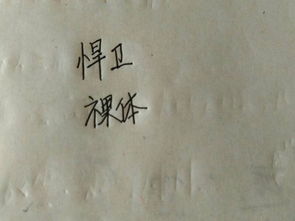 悍卫
裸体